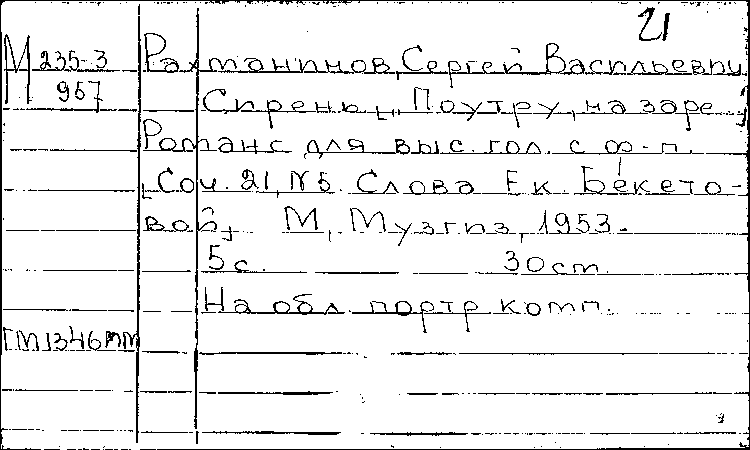 21
М 235-3
957
Рахманинов, Сергей Васильевич
Сирень. [„Поутру, на заре."]
Романс для выс. гол. с ф-п.
[Соч. 21, №5. Слова Ек. Бекето-
вой] М, Музгиз, 1953.
5 с. 30 см.
На обл. портр. комп.
ГМ1346мм